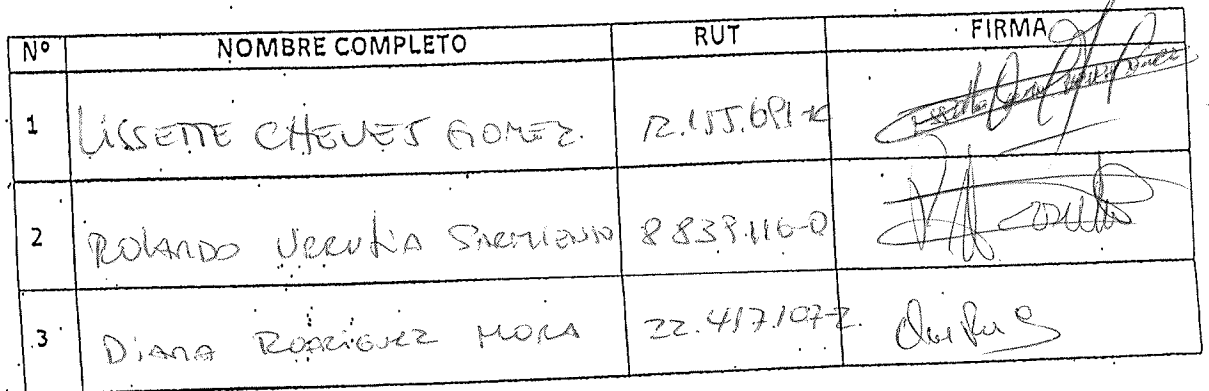 Nº NOMBRE COMPLETO RUT FIRMA
1 LISSETTE CHEVES GOMEZ. 12.155.691-K
2 ROLANDO URRUTIA SARMIENTO 8839.116-0
3 DIANA RODRIGUEZ MORA 22.417.107-2.